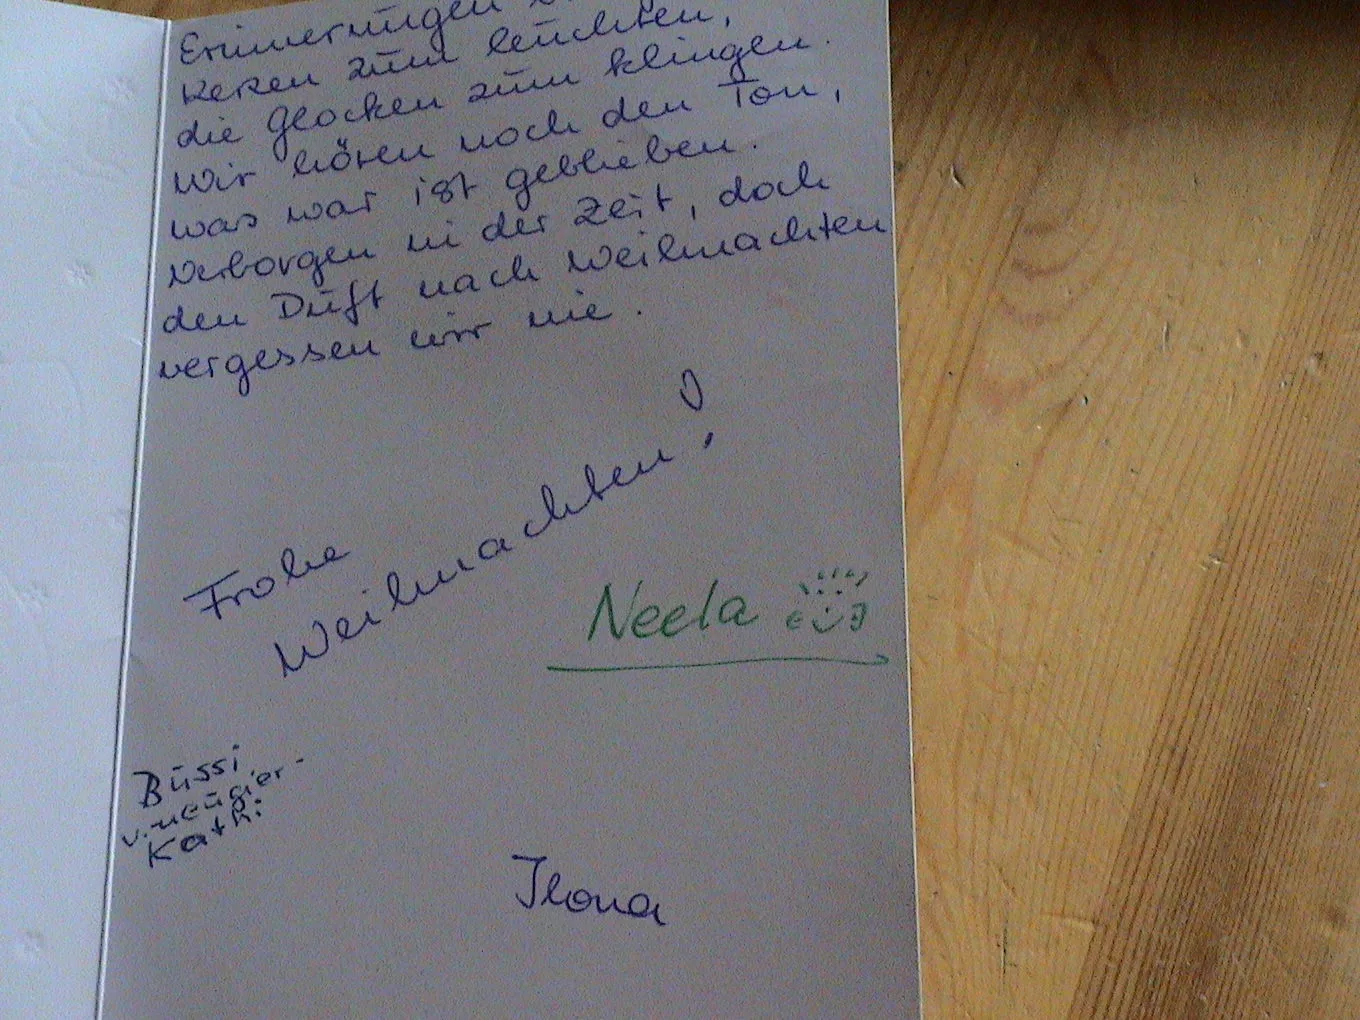 Erinnerungen
Kerzen zum leuchten,
die Glocken zum klingen.
Wir hören noch den Ton,
was war ist geblieben.
Verborgen in der Zeit, doch
den Duft nach Weihnachten
vergessen wir nie.
Frohe
Weihnachten!
Neela
Bussi
v. neugier-
Kathi
Ilona